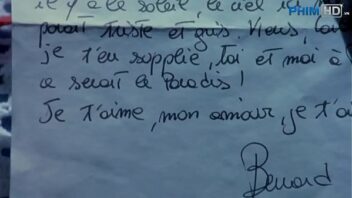 PHIMHD.vn
il y a le soleil, le ciel
paraît triste et gris. Viens,
je t'en supplie, toi et moi à
ce serait le Paradis !
Je t'aime, mon amour, je t'a
Bernard